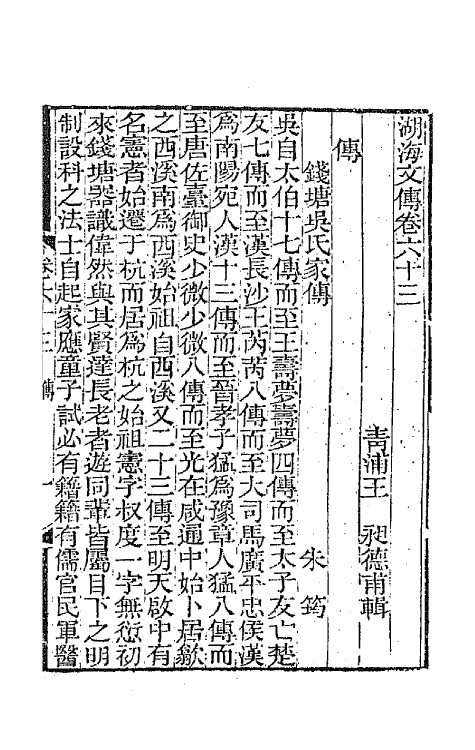 湖海文傳卷六十三
青浦王 昶德甫輯
傳
錢塘吳氏家傳 朱筠
吳自太伯十七傳而至王壽夢壽夢四傳而至太子友亡楚
友七傳而至漢長沙王芮芮八傳而至大司馬廣平忠侯漢
爲南陽宛人漢十三傳而至晉孝子猛爲豫章人猛八傳而
至唐佐臺御史少微少微八傳而至光在咸通中始卜居歙
之西溪南爲西溪始祖自西溪又二十三傳至明天啟中有
名憲者始遷于杭而居爲杭之始祖憲字叔度一字無愆初
來錢塘器識偉然與其賢達長老者遊同輩皆屬目下之明
制設科之法士自起家應童子試必有籍籍有儒官民軍醫
卷六十三 傳 一